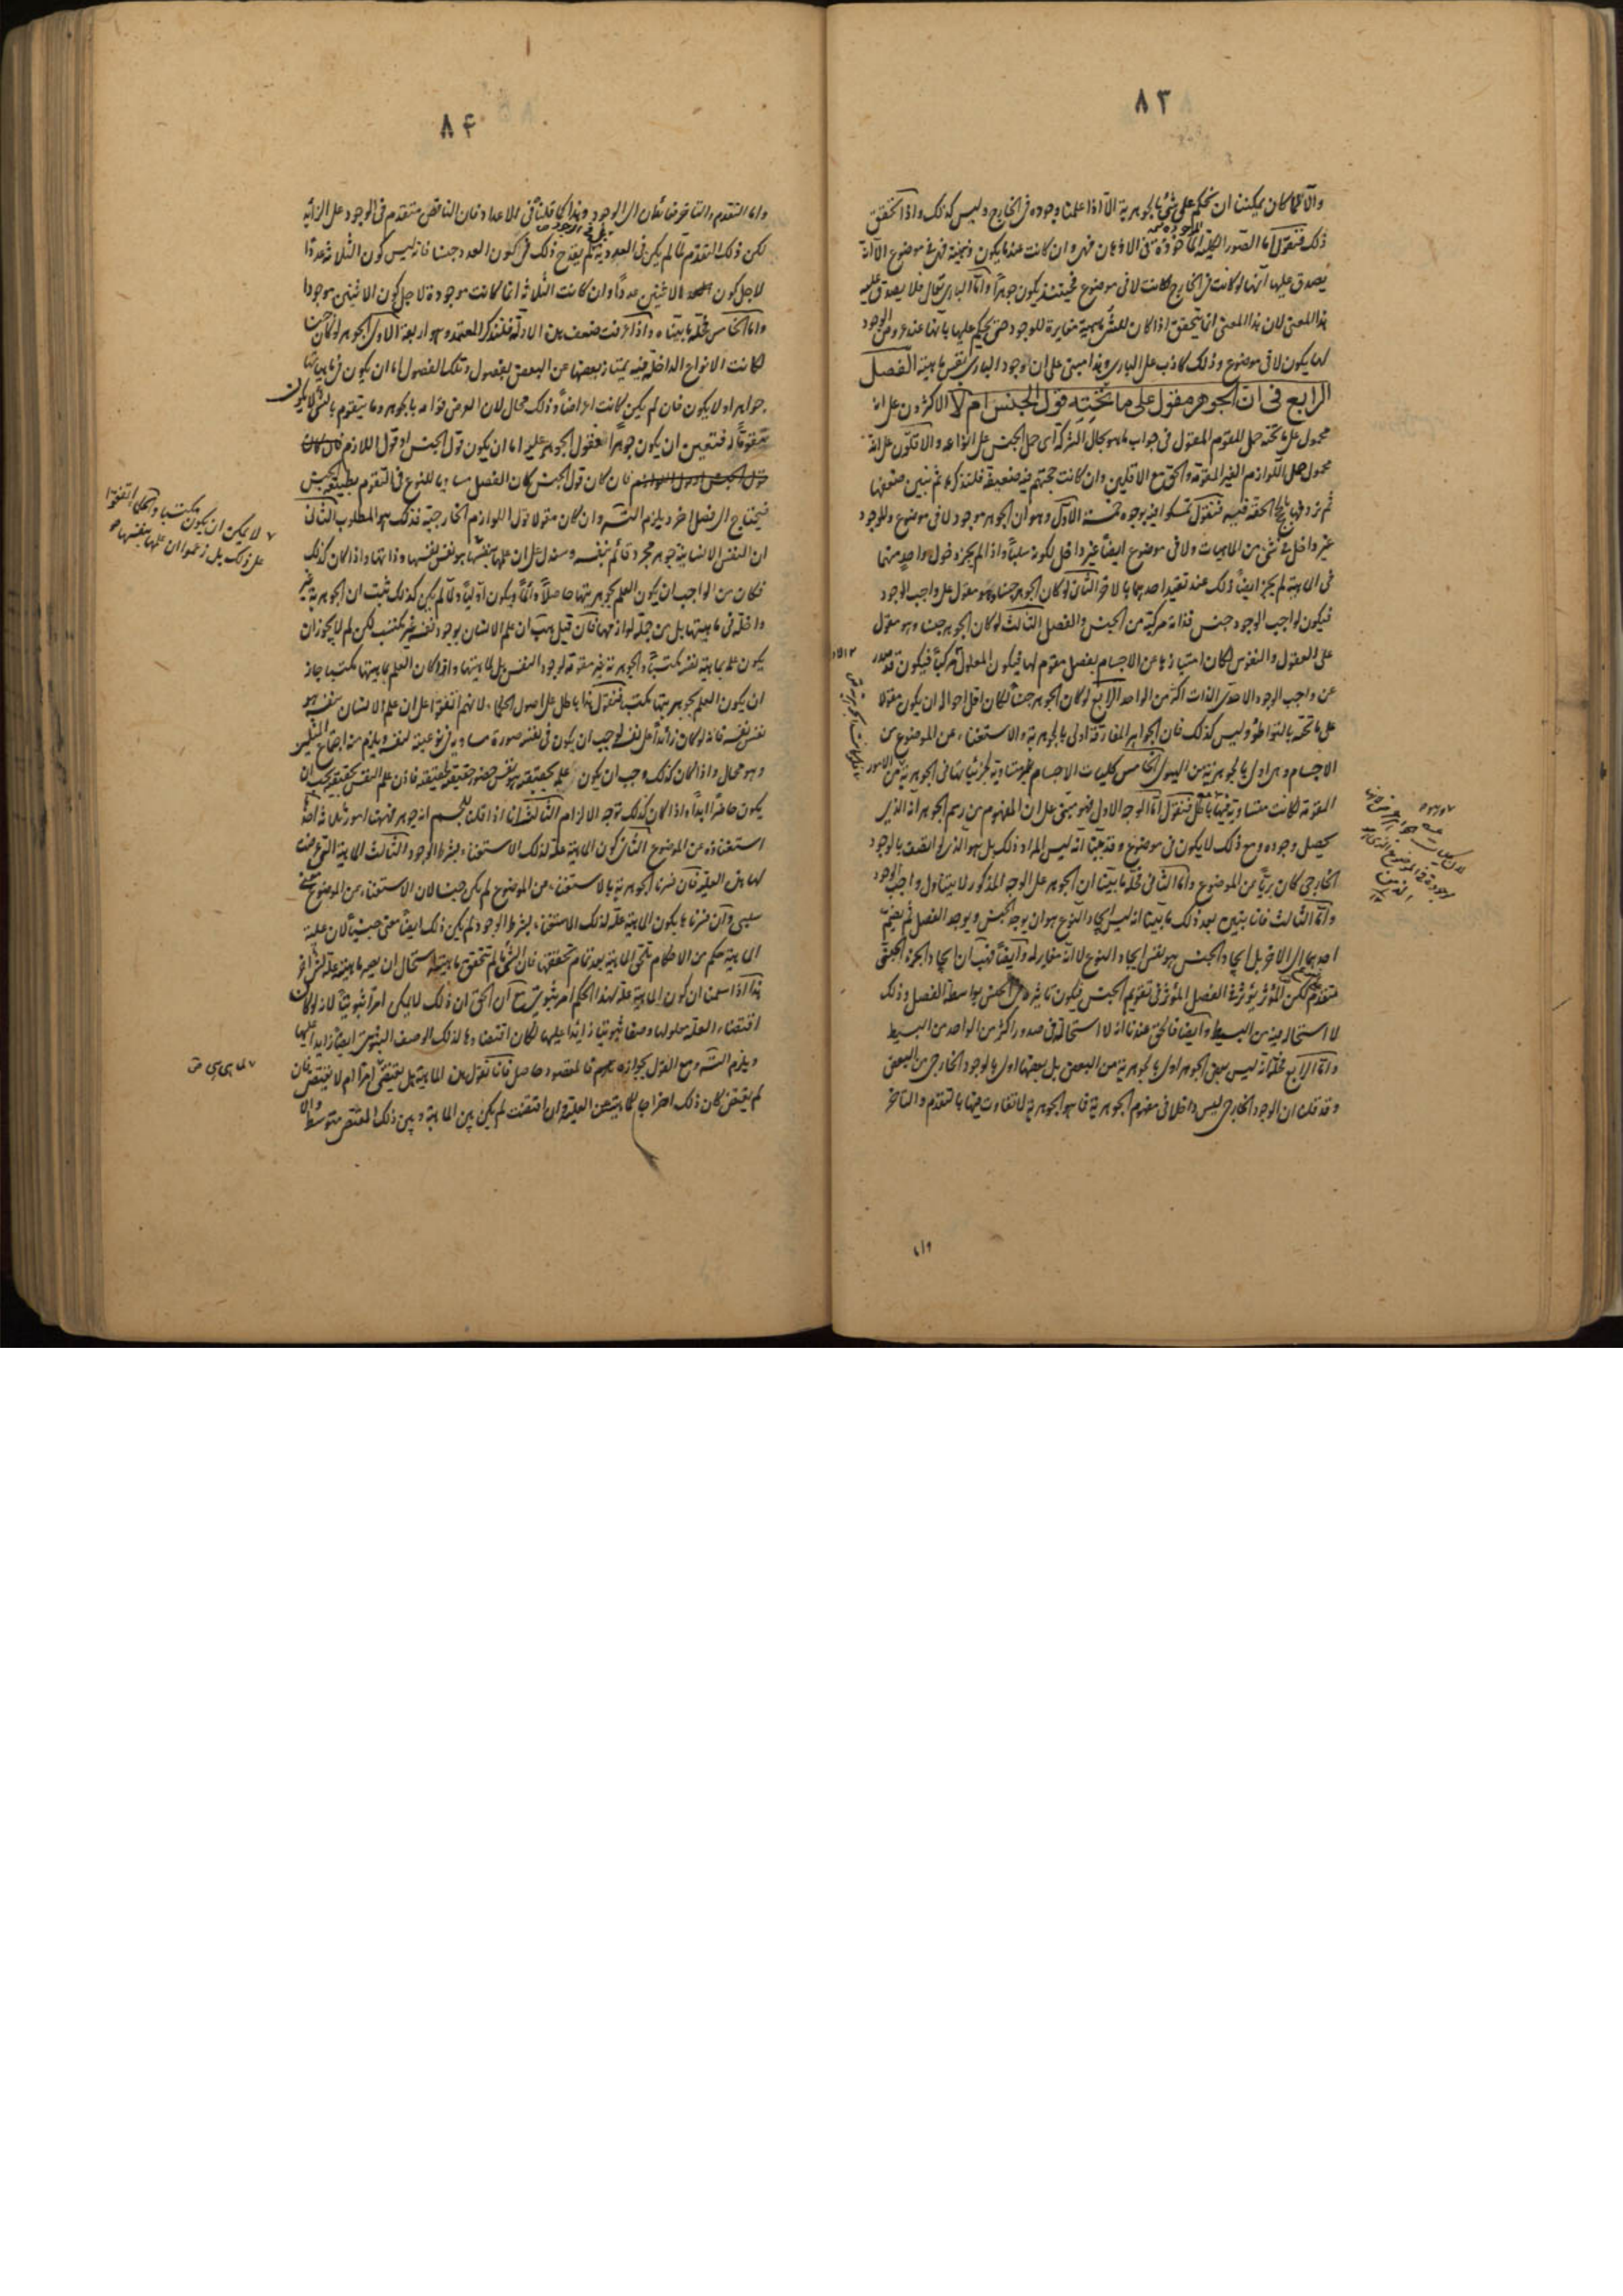 ٨٣
والا لما كان يمكننا ان نحكم على شئ بالجوهرية الا اذا علمنا وجوده فى الخارج وليس كذلك واذا تحقق
ذلك فنقول اما الصور الكلية المأخوذة فى الاذهان فهى وان كانت عندما يكون ذهنية فهى فى موضوع الا انه
يصدق عليها انها لو كانت فى الخارج لكانت لا فى موضوع فحينئذ يكون جوهرا واما البارى تعالى فلا يصدق عليه
هذا المعنى لان هذا المعنى انما يتحقق اذا كان للشئ ماهية مغايرة للوجود حتى يحكم عليها بانها عند عروض الوجود
لها يكون لا فى موضوع وذلك كاذب على البارى وهذا مبنى على ان وجود البارى نفس ماهيته الفصل
الرابع فى ان الجوهر مقول على ما تحته قول الجنس ام لا الاكثرون على انه
محمول على ما تحته حمل المقوم المقول فى جواب ما هو بحال الشركة اى حمل الجنس على انواعه والاقلون على انه
محمول حمل اللوازم الغير المقومة والحق مع الاقلين وان كانت حجتهم فيه ضعيفة فلنذكرها ثم نبين ضعفها
ثم نردفها بالحجج الحقة فيه فنقول تمسكوا فيه بوجوه خمسة الاول وهو ان الجوهر موجود لا فى موضوع والموجود
غير داخل فى شئ من الماهيات ولا فى موضوع ايضا غير داخل لكونه سلبا واذا لم يجز دخول واحد منهما
فى الماهية لم يجز ايضا ذلك عند تقييد احدهما بالاخر الثانى لو كان الجوهر جنسا وهو مقول على واجب الوجود
فيكون لواجب الوجود جنس فذاته مركبة من الجنس والفصل الثالث لو كان الجوهر جنسا وهو مقول
على العقول والنفوس لكان امتيازها عن الاجسام بفصل مقوم لها فيكون المعلول الاول مركبا فيكون قد صدر
عن واجب الوجود الاحدى الذات اكثر من الواحد الرابع لو كان الجوهر جنسا لكان اقل احواله ان يكون مقولا
على ما تحته بالتواطؤ وليس كذلك فان الجواهر المفارقة اولى بالجوهرية والاستغناء عن الموضوع من
الاجسام وهى اولى بالجوهرية من الهيولى الخامس كليات الاجسام غير متساوية لجزئياتها فى الجوهرية من الامور
المقومة لكانت متساوية فيها بالكل فنقول اما الوجه الاول فهو مبنى على ان المفهوم من رسم الجوهر انه الذى
يحصل وجوده ومع ذلك لا يكون فى موضوع وقد بينا انه ليس المراد ذلك بل هو الذى لو اتصف بالوجود
الخارجى كان بريا عن الموضوع واما الثانى فحله ما بينا ان الجوهر على الوجه المذكور لا يتناول واجب الوجود
واما الثالث فانما يتبين بعد ذلك ما بينا انه ليس ايجاد النوع هو ان يوجد الجنس ويوجد الفصل ثم يضم
احدهما الى الاخر بل ايجاد الجنس هو نفس ايجاد النوع لا انه مغاير له وايضا فهب ان ايجاد الجزء الجنسى
متقدم لكن المؤثر يؤثر فى الفصل المؤثر فى تقويم الجنس فيكون تاثيره فى الجنس بواسطة الفصل وذلك
لا استحالة فيه من البسيط وايضا فالحق عندنا انه لا استحالة فى صدور اكثر من الواحد من البسيط
واما الرابع فحله انه ليس بعض الجوهر اولى بالجوهرية من البعض بل بعضها اولى بالوجود الخارجى من البعض
وقد قلنا ان الوجود الخارجى ليس داخلا فى مفهوم الجوهرية فما هو الجوهرية لا تفاوت فيها بالتقدم والتاخر
واما
٨۴
واما التقدم والتاخر فعائدان الى الوجود وهذا كما قلنا فى الاعداد فان الناقص متقدم فى الوجود على الزايد
لكن ذلك التقدم لما لم يكن فى العددية بل فى الوجود لم يقدح ذلك فى كون العدد جنسا فانه ليس كون الثلاثة عددا
لاجل كون الاثنين عددا وان كانت الثلاثة انما كانت موجودة لاجل كون الاثنين موجودا
واما الخامس فحله ما بيناه واذا عرفت ضعف هذه الادلة فلنذكر المعتمد وهو اربعة الاول الجوهر لو كان جنسا
لكانت الانواع الداخلة فيه يمتاز بعضها عن البعض بفصول وتلك الفصول اما ان يكون فى ماهياتها
جواهر او لا يكون فان لم يكن كانت اعراضا وذلك محال لان العرض قوامه بالجوهر وما يتقوم بالشئ لا يكون
مقوما له فتعين ان يكون جوهرا فقول الجوهر عليه اما ان يكون قول الجنس او قول اللازم
فان كان قول الجنس كان الفصل مساويا للنوع فى التقوم بطبيعة الجنس
فيحتاج الى فصل اخر ويلزم التسلسل وان كان مقولا قول اللوازم الخارجية فذلك هو المطلوب الثانى
ان النفس الانسانية جوهر مجرد قائم بنفسه وسندل على ان علمها بنفسها هو نفس نفسها وذاتها واذا كان كذلك
فكان من الواجب ان يكون العلم بجوهريتها حاصلا دائما ويكون اوليا ولما لم يكن كذلك ثبت ان الجوهرية غير
داخلة فى ماهيتها بل من جملة لوازمها فان قيل هب ان علم الانسان بوجود نفسه غير مكتسب لكن لم لا يجوز ان
يكون علمه بماهية نفسه مكتسبا والجوهرية غير مقومة لوجود النفس بل لماهيتها واذا كان العلم بماهيتها مكتسبا جاز
ان يكون العلم بجوهريتها مكتسبا فنقول هذا باطل على اصول الحكماء لانهم اتفقوا على ان علم الانسان بنفسه هو
نفس نفسه فانه لو كان زائدا على نفسه لوجب ان يكون فى نفسه صورة مساوية فى نوعيته لنفسه ويلزم منه اجتماع المثلين
وهو محال واذا كان كذلك وجب ان يكون علمه بحقيقته هو نفس حضور حقيقته لحقيقته فاذن علم النفس بحقيقتها يجب ان
يكون حاضرا ابدا واذا كان كذلك توجه الالزام الثالث انا اذا قلنا للجسم انه جوهر فههنا امور ثلاثة احدها
استغناؤه عن الموضوع الثانى كون الماهية علة لذلك الاستغناء بشرط الوجود الثالث الماهية التى عرضت
لها هذه العلية فان فسرنا الجوهرية بالاستغناء عن الموضوع لم يكن جنسا لان الاستغناء عن الموضوع معنى
سلبى وان فسرناه بكون الماهية علة لذلك الاستغناء بشرط الوجود لم يكن ذلك ايضا معنى جنسيا لان علية
الماهية حكم من الاحكام تلحق الماهية بعد تمام تحققها فان الشئ ما لم تتحقق ماهيته استحال ان يصير ماهيته علة لشئ اخر
هذا اذا سلمنا ان كون الماهية علة لهذا الحكم امر ثبوتى مع ان الحق ان ذلك لا يمكن امرا ثبوتيا لانه لو كان
اقتضاء العلة معلولها وصفا ثبوتيا زائدا عليها لكان اقتضاؤها لذلك الوصف الثبوتى ايضا زايدا عليها
ويلزم التسلسل ومع القول بجوازه فالمقصود حاصل فانا نقول هذه الماهية هل يقتضى امرا ام لا يقتضى فان
لم يقتض كان ذلك اخراجا للماهية عن العلية وان اقتضت لم يكن بين الماهية وبين ذلك المقتضى متوسط والا
لا يمكن ان يكون مكتسبا والحكماء اتفقوا
على ذلك بل زعموا ان علمها بنفسها هو